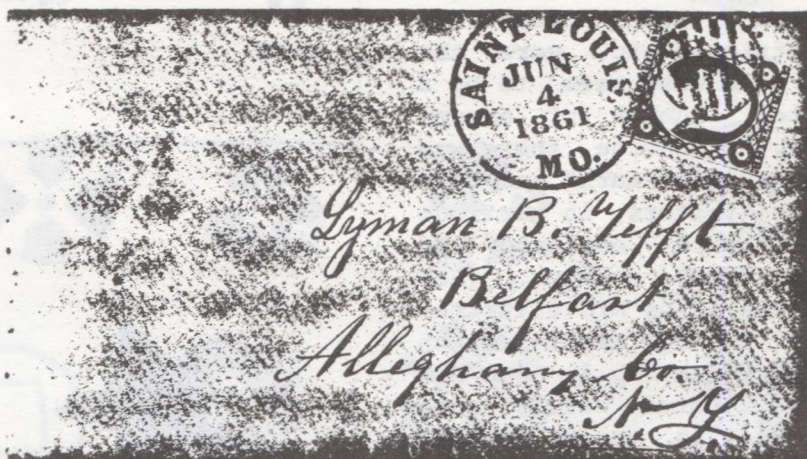 SAINT LOUIS
JUN
4
1861
MO.
Lyman B. Tefft
Belfast
Alleghany Co.
N. Y.